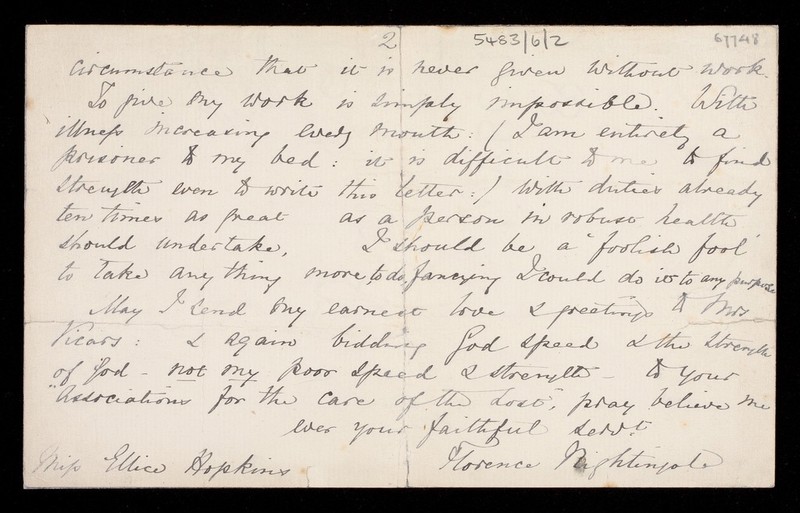 2 5483/6/2 67748
circumstance that it is never given without work.
To give my work is simply impossible. With
illness increasing every month: (I am entirely a
prisoner to my bed: it is difficult to me to find
strength even to write this letter:) With duties already
ten times as great as a person in robust health
should undertake, I should be a "foolish fool"
to take any thing more to do, fancying I could do it to any purpose
May I send my earnest love & greetings to Mrs
Vicars: & again bidding God speed & the strength
of God - not my poor speed & strength - to your
"Associations for the Care of the Lost", pray believe me
ever your faithful servt
Miss Ellice Hopkins Florence Nightingale